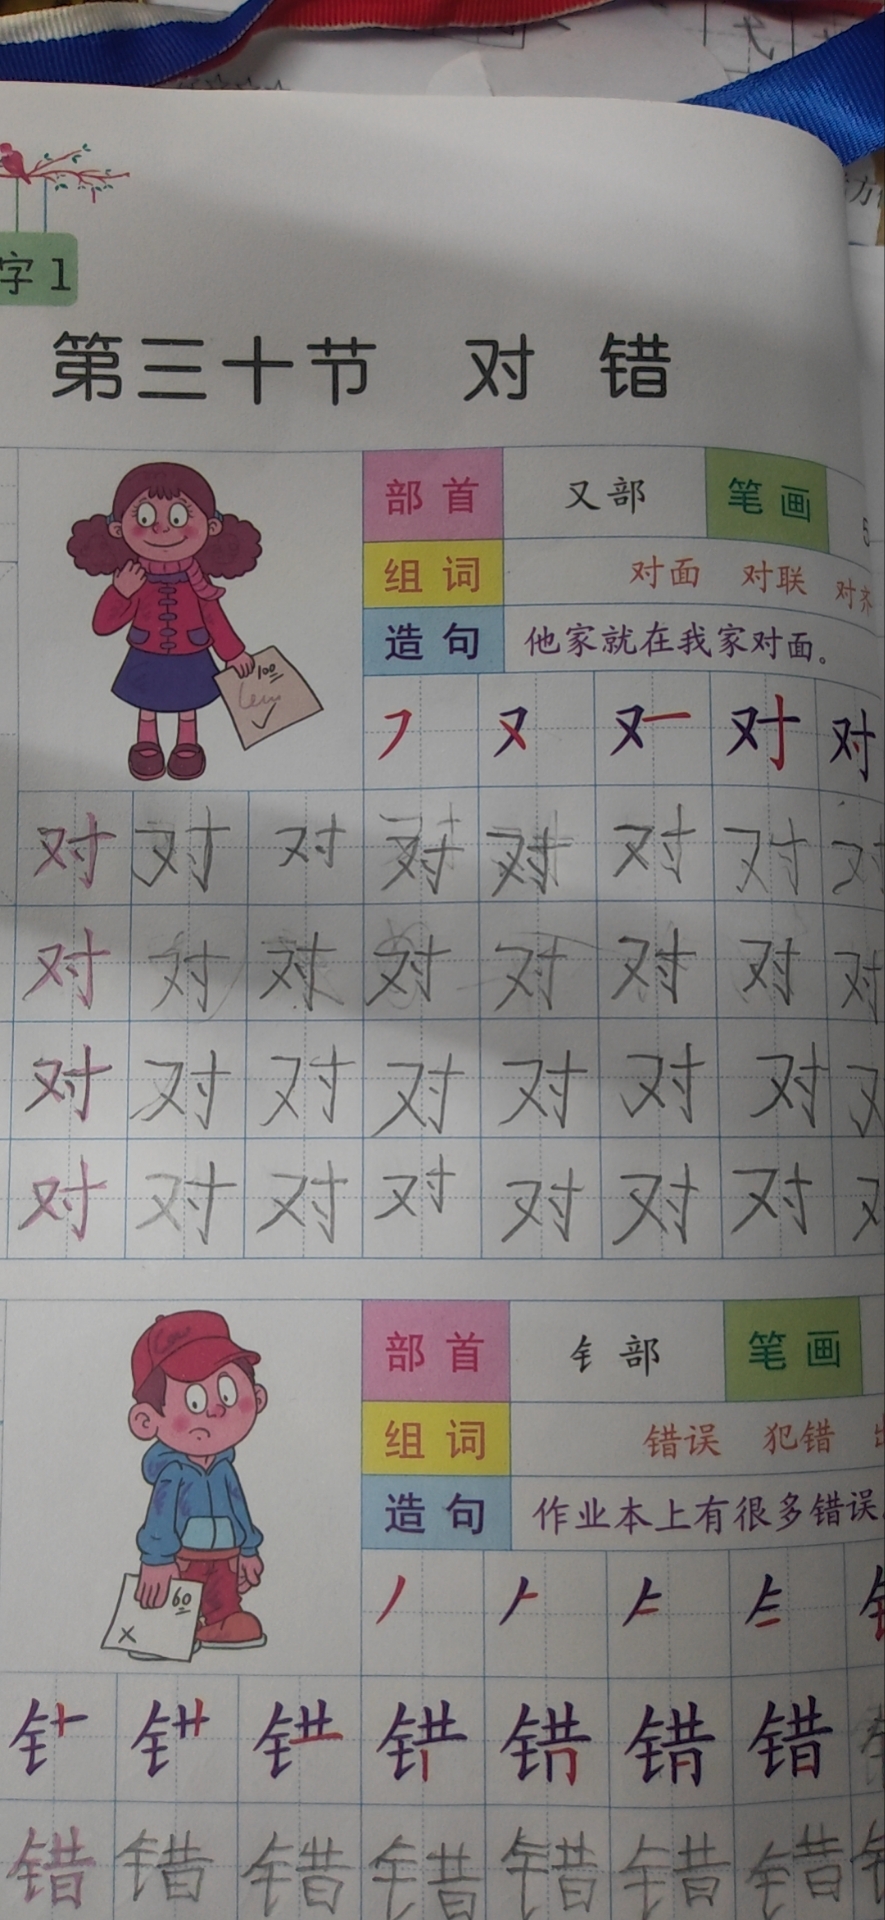 字1
第三十节 对 错
部首 又部 笔画 5
组词 对面 对联 对齐
造句 他家就在我家对面。
100
对
对 对 对 对 对 对 对 对
对 对 对 对 对 对 对 对
对 对 对 对 对 对 对
对 对 对 对 对 对 对
部首 钅部 笔画
组词 错误 犯错
造句 作业本上有很多错误
60
错
错 错 错 错 错 错 错